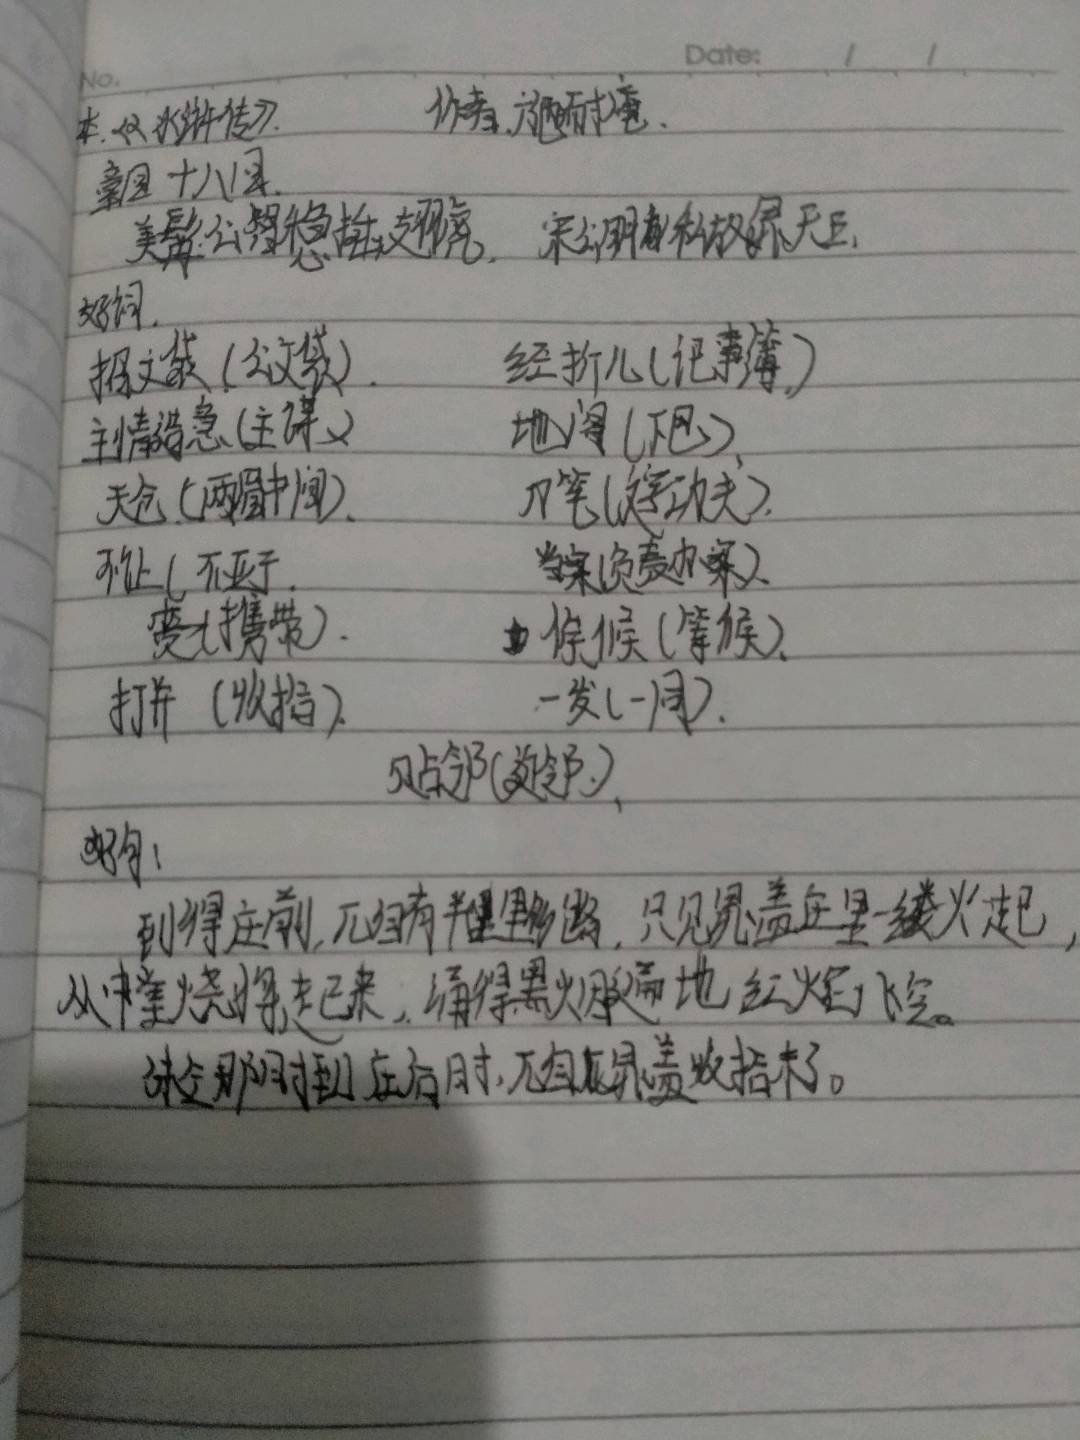 No. Date: / /
本《水浒传》. 作者.施耐庵.
章回 十八回.
美髯公智稳插翅虎. 宋公明私放晁天王.
好词.
招文袋(公文袋). 经折儿(记事簿)
主情造意(主谋) 地阁(下巴)
天仓(两眉中间). 刀笔(文字功夫).
不让(不亚于. 当案(负责办案).
(携带). 俟候(等候).
打并(收拾). 一发(一同).
贴邻(近邻.)
好句:
到得庄前,兀自有半里多路,只见晁盖庄里一缕火起,
从中堂烧将起来,涌得黑烟遍地 红焰飞空。
朱仝那时到庄后时,兀自晁盖收拾未了。